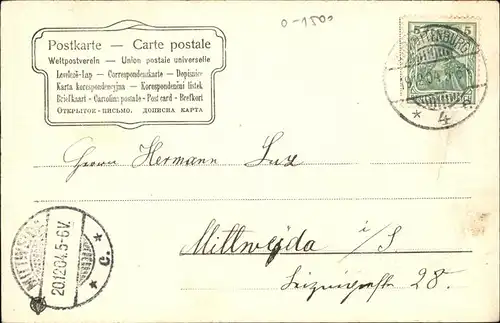 0-1500
Postkarte — Carte postale
Weltpostverein — Union postale universelle
Levelező-Lap — Correspondenzkarte — Dopisnice
Karta korespondencyjna — Korespondenčni listek
Briefkaart - Cartolina postale - Post card - Brefkort
ОТКРЫТОЕ - ПИСЬМО. ДОПИСНА КАРТА
5 5
* 4
Herrn Hermann Lux
Mittweida i/S
28.
20.12.04.5-6V.
* C. *